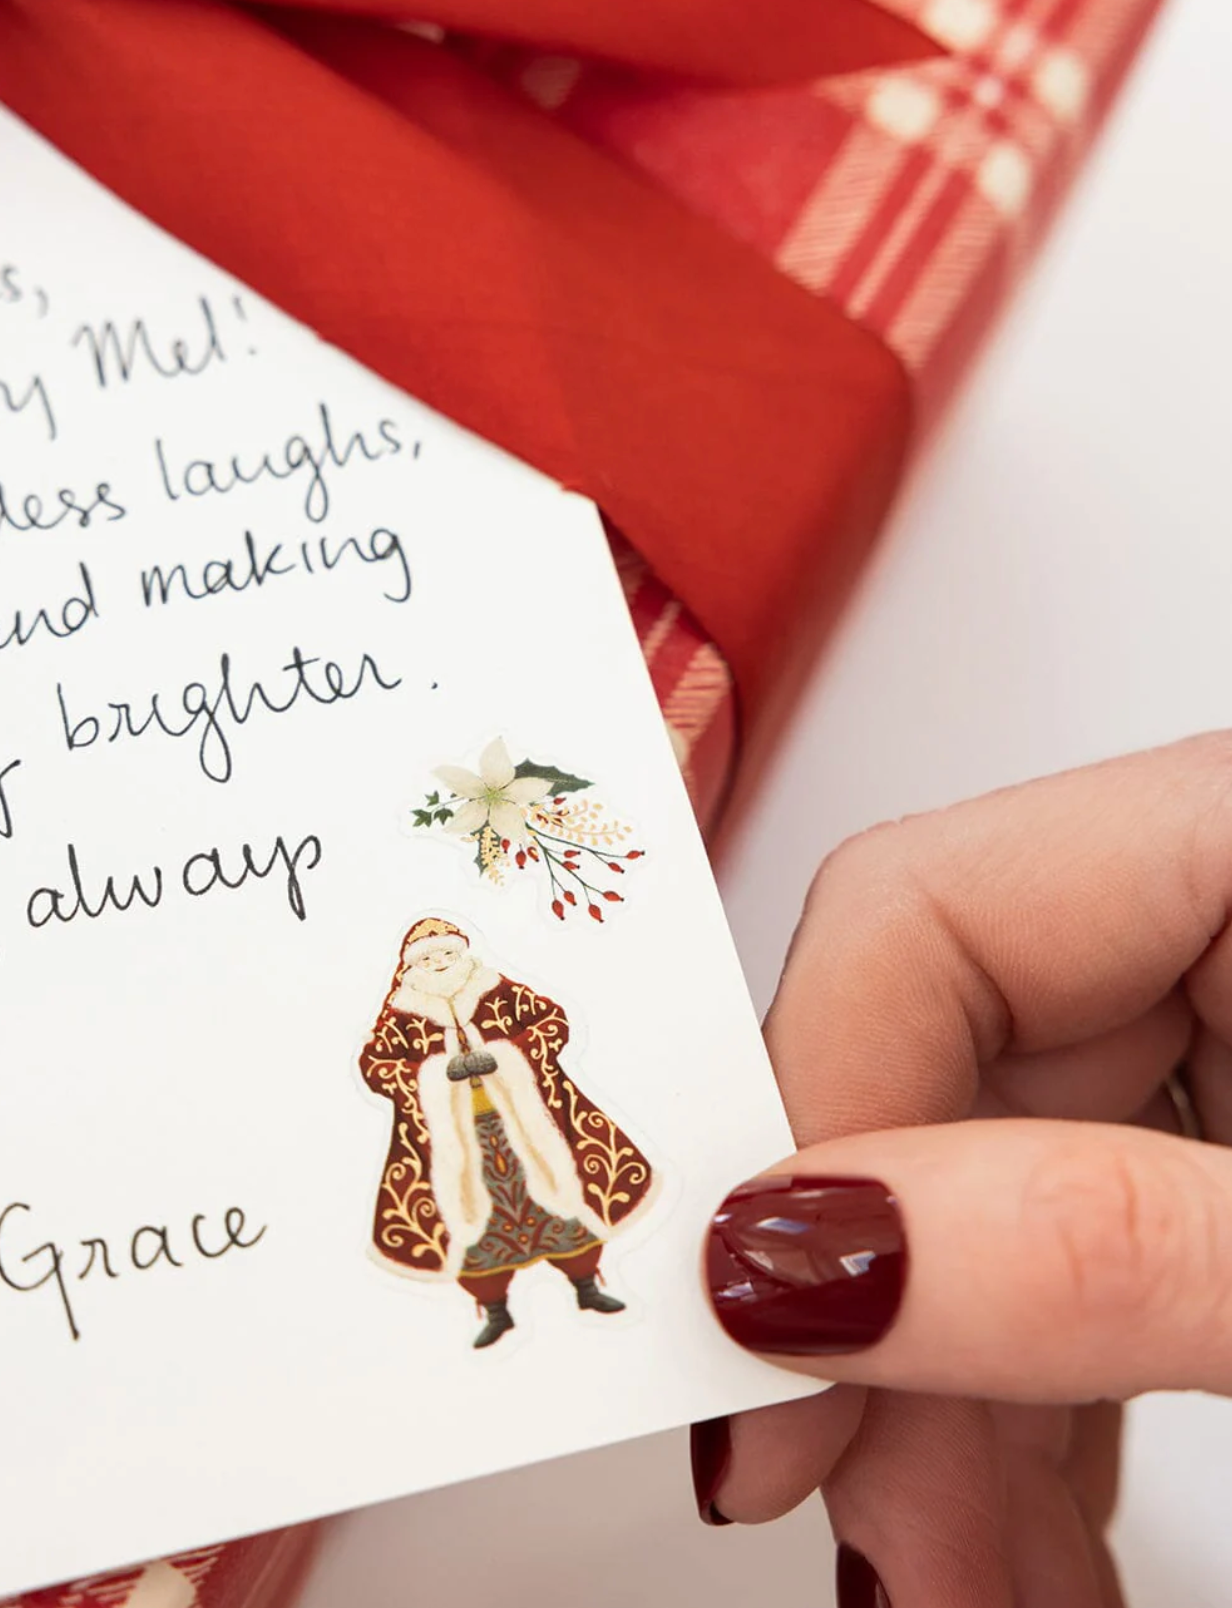 s,
y Mel!
less laughs,
and making
brighter.
always
Grace